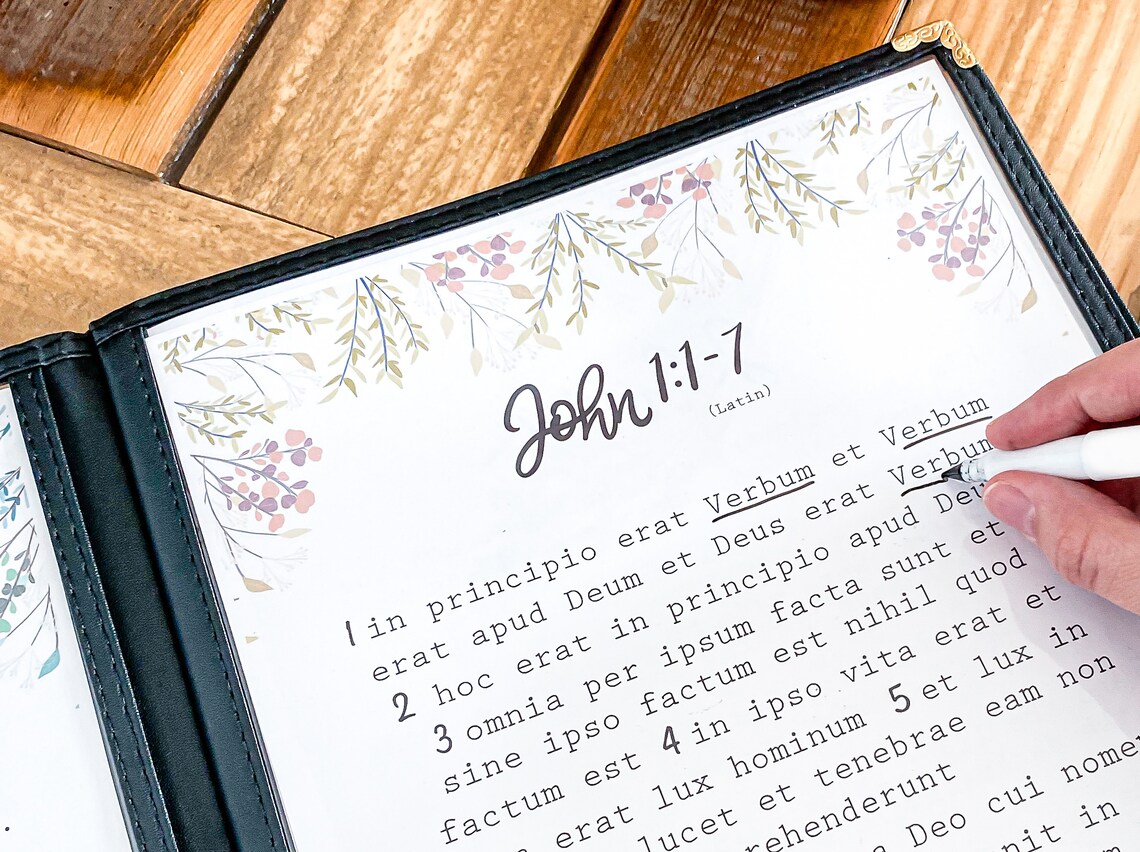 John 1:1-7
(Latin)
1 in principio erat Verbum et Verbum
erat apud Deum et Deus erat Verbum
2 hoc erat in principio apud
3 omnia per ipsum facta sunt et
sine ipso factum est nihil quod
factum est 4 in ipso vita erat et
erat lux hominum 5 et lux in
lucet et tenebrae eam non
Deo cui
in